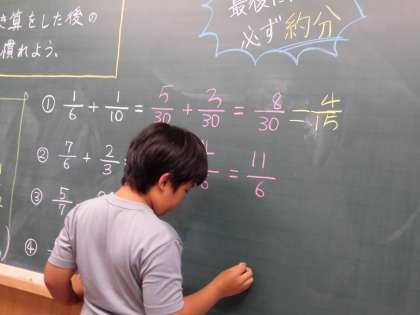 算をした後の
慣れよう。
最後に
必ず約分
① 1/6 + 1/10 = 5/30 + 3/30 = 8/30 = 4/15
② 7/6 + 2/3 = 4/6 = 11/6
③ 5/7
④